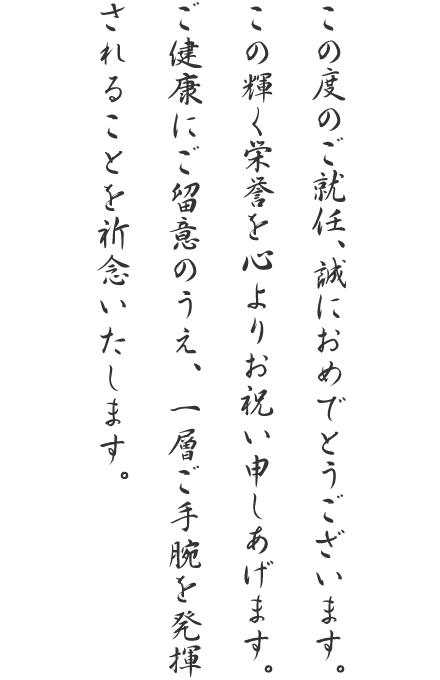 この度のご就任、誠におめでとうございます。
この輝く栄誉を心よりお祝い申しあげます。
ご健康にご留意のうえ、一層ご手腕を発揮
されることを祈念いたします。